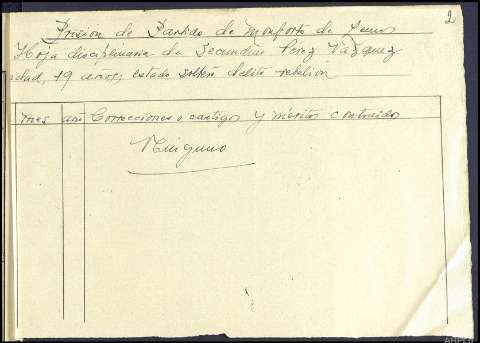 2
Prision de Partido de Monforte de Lemus
Hoja disciplinaria de Secundino Perez Vazquez
edad, 19 anos, estado soltero delito rebelion
mes año Correcciones o castigos y méritos contraidos
Ninguno